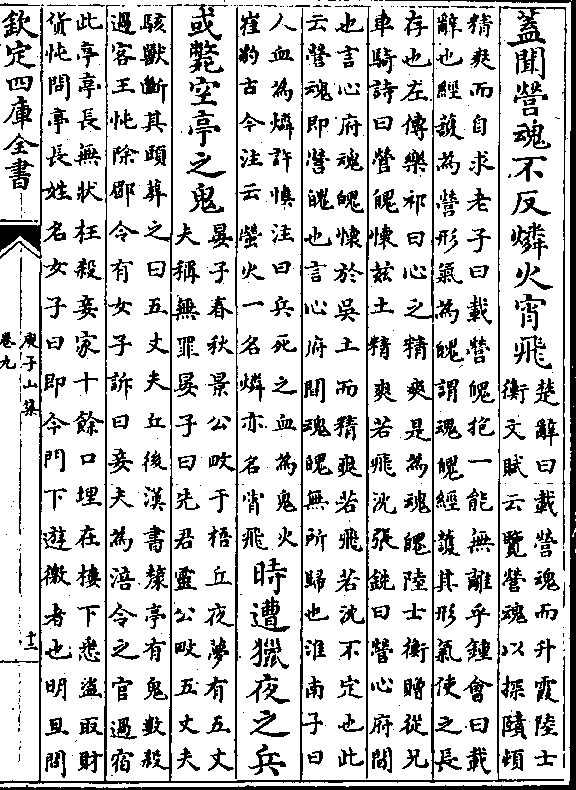 蓋聞營魂不反燐火宵飛
楚辭曰載營魂而升霞陸士
衡文賦云覽營魂以探賾頓
精爽而自求老子曰載營魄抱一能無離乎鍾會曰載
辭也經護為營形氣為魄謂魂魄經護其形氣使之長
存也左傳樂祁曰心之精爽是為魂魄陸士衡贈從兄
車騎詩曰營魄懷茲土精爽若飛沈張銑曰營心府間
也言心府魂魄懷於吳土而精爽若飛若沈不定也此
云營魂即營魄也言心府間魂魄無所歸也淮南子曰
人血為燐許慎注曰兵死之血為鬼火
崔豹古今注云螢火一名燐亦名宵飛
時遭獵夜之兵
或斃空亭之鬼
晏子春秋景公畋于梧丘夜夢有五丈
夫稱無罪晏子曰先君靈公畋五丈夫
駭獸斷其頭葬之曰五丈夫丘後漢書斄亭有鬼數殺
過客王忳除郿令有女子訴曰妾夫為涪令之官過宿
此亭亭長無狀枉殺妾家十餘口埋在樓下悉盜取財
貨忳問亭長姓名女子曰即今門下遊徼者也明旦問
欽定四庫全書
庾子山集
卷九
十二